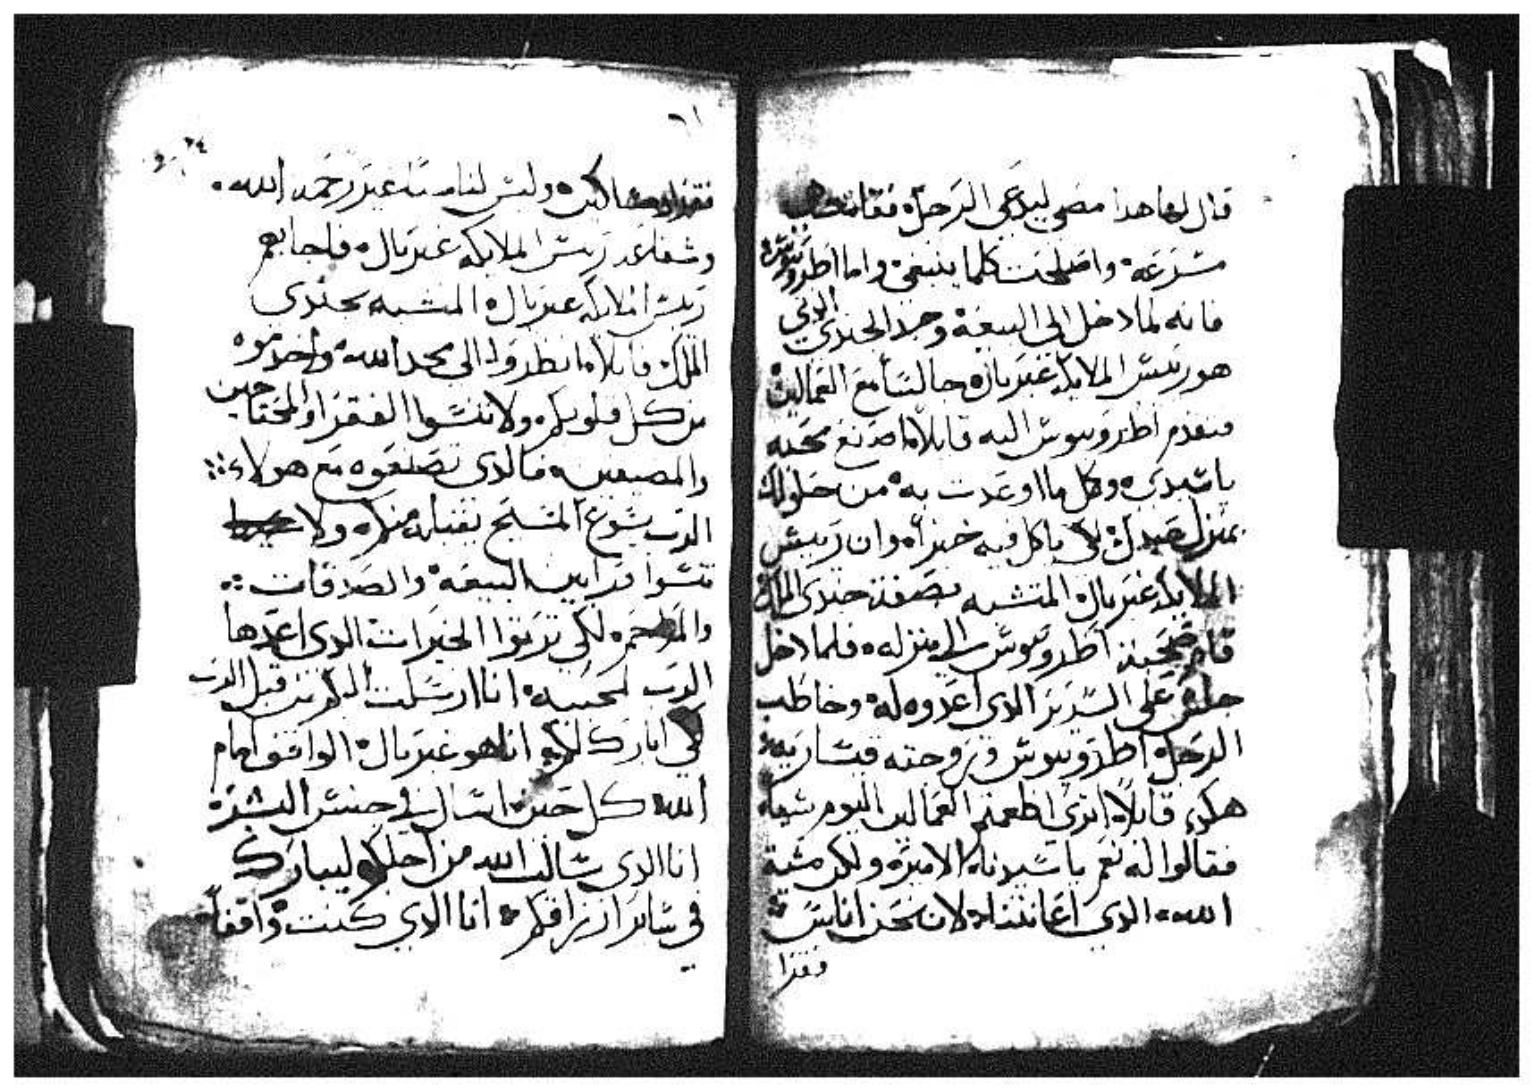 قال لها هدا مضي ليدعي الرجل فقامت
مسرعه واصلحت كلما ينبغي واما اطروبيوس
فانه لما دخل الي البيعه وجد الجندي الدي
هو رييس الملايكه غبريال جالسا مع الفعالين
فتقدم اطروبيوس اليه قايلا اصنع محبه
ياسيدي وكل ما اوعدت به من حلولك
بمنزل عبدك لكي ياكل فيه خبزا وان رييس
الملايكه غبريال المتشبه بصفة جندي الملك
قام صحبة اطروبيوس الي منزله فلما دخل
جلس علي السرير الدي اعدوه له وخاطب
الرجل اطروبيوس وزوجته قيساريه
هكدي قايلا اتري اطعمتم الفعالين اليوم شيا
فقالوا له نعم ياسيدنا الامير ولكن مشية
الله الدي اعانتنا لان نحن اناس
فقرا
٦١
فقرا مساكين وليس لنا سبا غير رحمة الله
وشفاعة رييس الملايكه غبريال فاجابهم
رييس الملايكه غبريال المتشبه بجندي
الملك قايلا انظروا الي مجد الله واخدموه
من كل قلوبكم ولا تنسوا الفقرا والمحتاجين
والمضيفين فالدي تصنعوه مع هولاء
الرب يسوع المسيح يقبله منكم ولا
تنسوا قرابين البيعه والصدقات
والرحمه لكي ترتوا الخيرات الدي اعدها
الرب لمحبيه انا ارسلت اليكم من قبل الرب
لكي ابارك لكم انا هو غبريال الواقف امام
الله كل حين اسال في جنس البشر
انا الدي سالت الله من اجلكم ليبارك
في ساير ارزاقكم انا الدي كنت واقفا